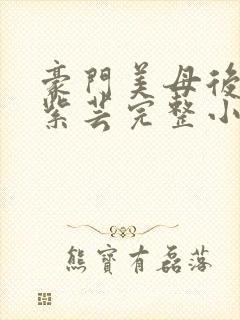 豪門美母後
紫芸完整小
熊寶有磊落